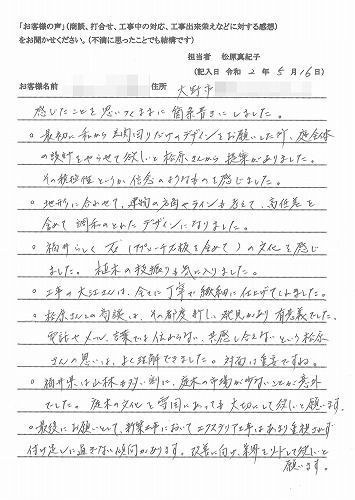 「お客様の声」(商談、打合せ、工事中の対応、工事出来栄えなどに対する感想)
をお聞かせください。(不満に思ったことでも結構です)
担当者 松原真紀子
(記入日 令和 2 年 5 月 16 日)
お客様名前 住所 大野市
感じたことを思いつくままに箇条書きにしました。
○最初に私から玄関回りだけのデザインをお願いしたが、庭全体
の設計をやらせて欲しいと松原さんから提案がありました。
その積極性というか信念のようなものを感じました。
○地形に合わせて、建物の方向やラインを考えて、高低差を
含めて調和のとれたデザインになりました。
○福井らしく石(笏谷石板を含めて)の文化を感じ
ました。植木の枝振りも気に入りました。
○工事の大江さんは、全てに丁寧で繊細に仕上げてくれました。
○松原さんとの商談は、その都度新しい発見があり有意義でした。
電話やメール、言葉では伝わらない、共感し合えないという松原
さんの思いは、よく理解できました。対面は重要ですね。
○福井県は山林が多い割に、庭木の市場が少ないことが意外
でした。庭木の文化を守るにあっても大切にして欲しいと願います。
○最後にお願いとして、新築工事においてエクステリア工事はあまり重視されず
付け足しに過ぎない傾向があります。改善に向け、業界をリードして欲しいと
願います。